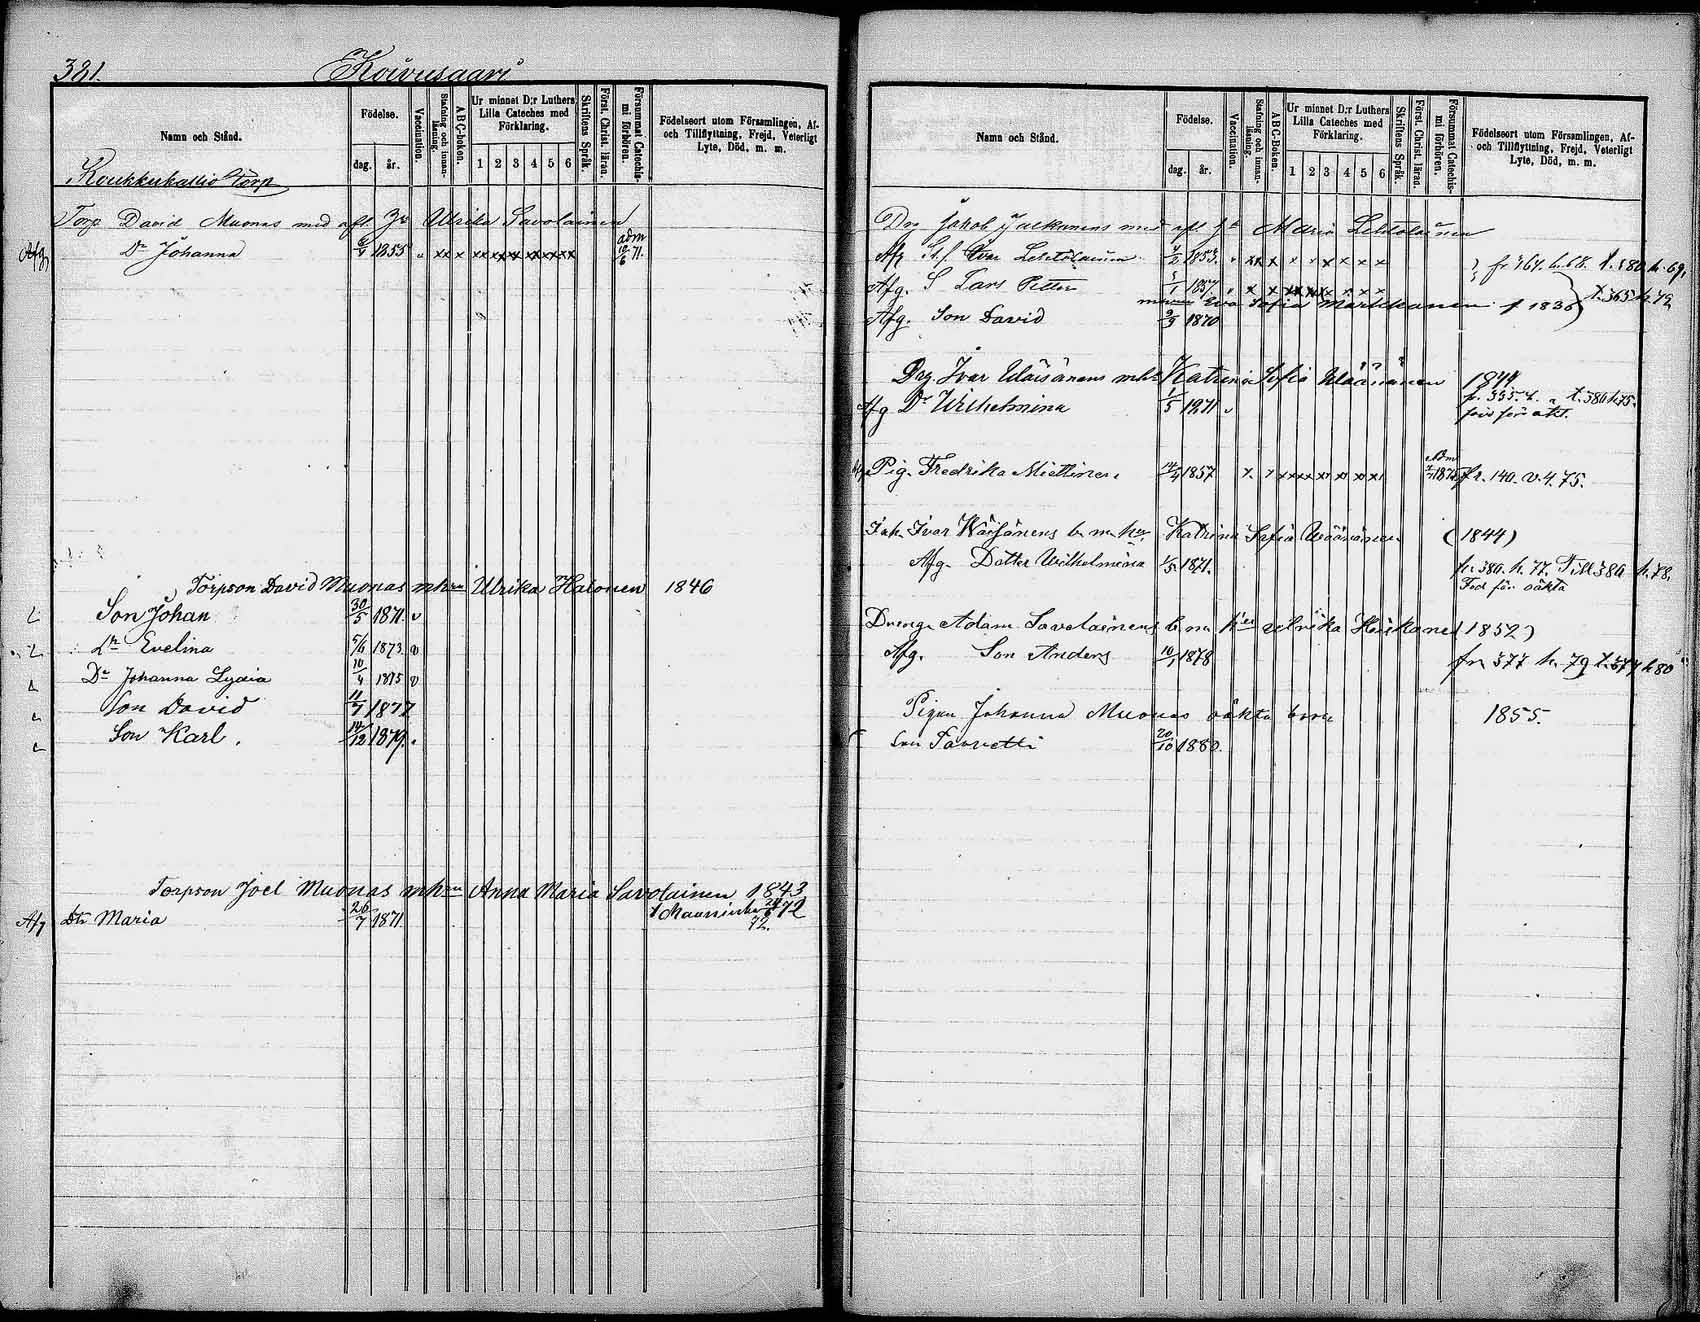 381. Koivusaari
Namn och Stånd.
Födelse.
dag. år.
Vaccination.
Stafning och innanläsning.
A B C-Boken.
Ur minnet D:r Luthers Lilla Cateches med Förklaring.
1 2 3 4 5 6
Skriftens Språk.
Först. Christ. läran.
Försummat Catechismi förhören.
Födelseort utom Församlingen, Af- och Tillflyttning, Frejd, Veterligt Lyte, Död, m. m.
Koukkukallio Torp
Torp. David Muonas med afl. Ulrika Savolainen
Afg. Dr Johanna 1855 adm 71.
Torpson David Muonas mhru Ulrika Halonen 1846
Son Johan 30/5 1871 v
Dr Evelina 5/6 1873 v
Dr Johanna Lydia 10/4 1875 v
Son David 11/7 1877
Son Karl. 14/12 1879.
Torpson Joel Muonas mhru Anna Maria Savolainen 1843
Afg Dtr Maria 26/7 1871 72
Namn och Stånd.
Födelse.
dag. år.
Vaccination.
Stafning och innanläsning.
A B C-Boken.
Ur minnet D:r Luthers Lilla Cateches med Förklaring.
1 2 3 4 5 6
Skriftens Språk.
Först. Christ. läran.
Försummat Catechismi förhören.
Födelseort utom Församlingen, Af- och Tillflyttning, Frejd, Veterligt Lyte, Död, m. m.
Drg Jakob med afl. Maria Lehtolainen
Afg Ivar Lehtolainen 1853. t. 380 h. 69.
Afg. S Lars Petter 5/1 1857 t. 365 h. 72
Eva Sofia Markkanen f 1836
Afg. Son David 9/3 1870
Drg. Ivar Wäisänens mhu Katrina Sofia Wäänänen 1844
Afg Dr Wilhelmina 1/5 1871 v fr. 335. t. 380 h 75.
född för äkt.
Pig. Fredrika Miettinen 14/4 1857 Adm 1875 fr. 140. v. 4. 75.
Inh. Ivar Wäisänens b. m. hu Katrina Sofia Wäänänen (1844)
Afg. Dotter Wilhelmina 1/5 1871. fr 380. h. 77. Till 380 h. 78.
Född för oäkta
Dreng. Adam Savolainens b. m. hu Ulrika Heiskanen (1852)
Afg. Son Anders 10/1 1878 fr. 377 h. 79 t. 377 h 80
Pigan Johanna Muonas oäkta barn 1855.
Son Taavetti 20/10 1880.